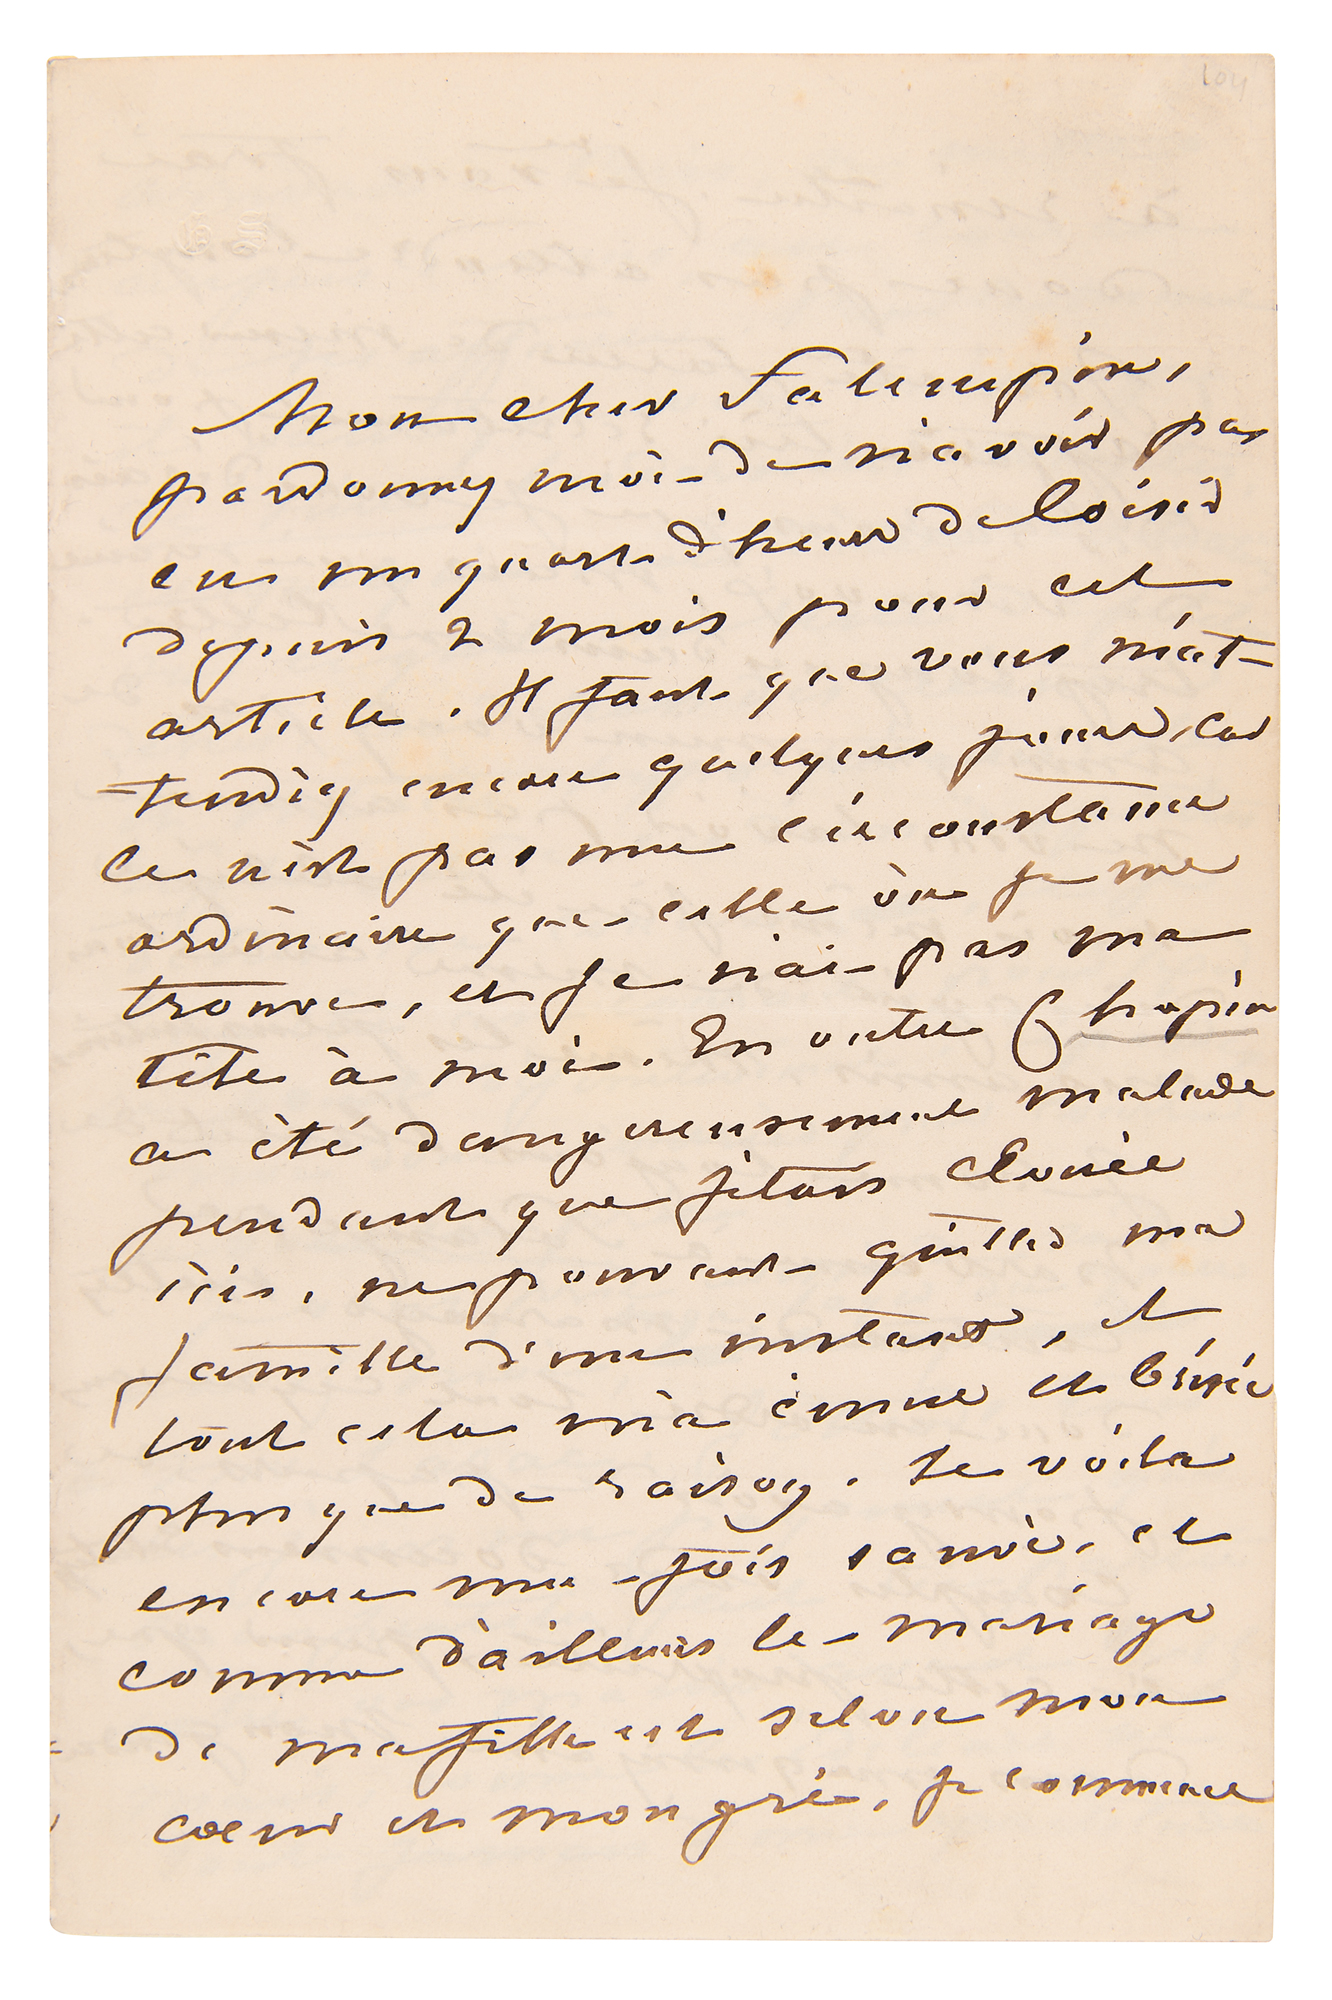 104
GS
Mon cher Falempin,
pardonnez moi de n'avoir pas
eu un quart d'heure de loisir
depuis 2 mois pour cet
article. Il faut que vous m'at-
-tendiez encore quelques jours, car
ce n'est pas une circonstance
ordinaire que celle où je me
trouve, et je n'ai pas ma
tête à moi. En outre Chopin
a été dangereusement malade
pendant que j'étais clouée
ici, ne pouvant quitter ma
famille d'un instant, et
tout cela m'a émue et brisée
plus que de raison. Le voilà
encore une fois sauvé, et
comme d'ailleurs le mariage
de ma fille est selon mon
coeur et mon gré, je commence